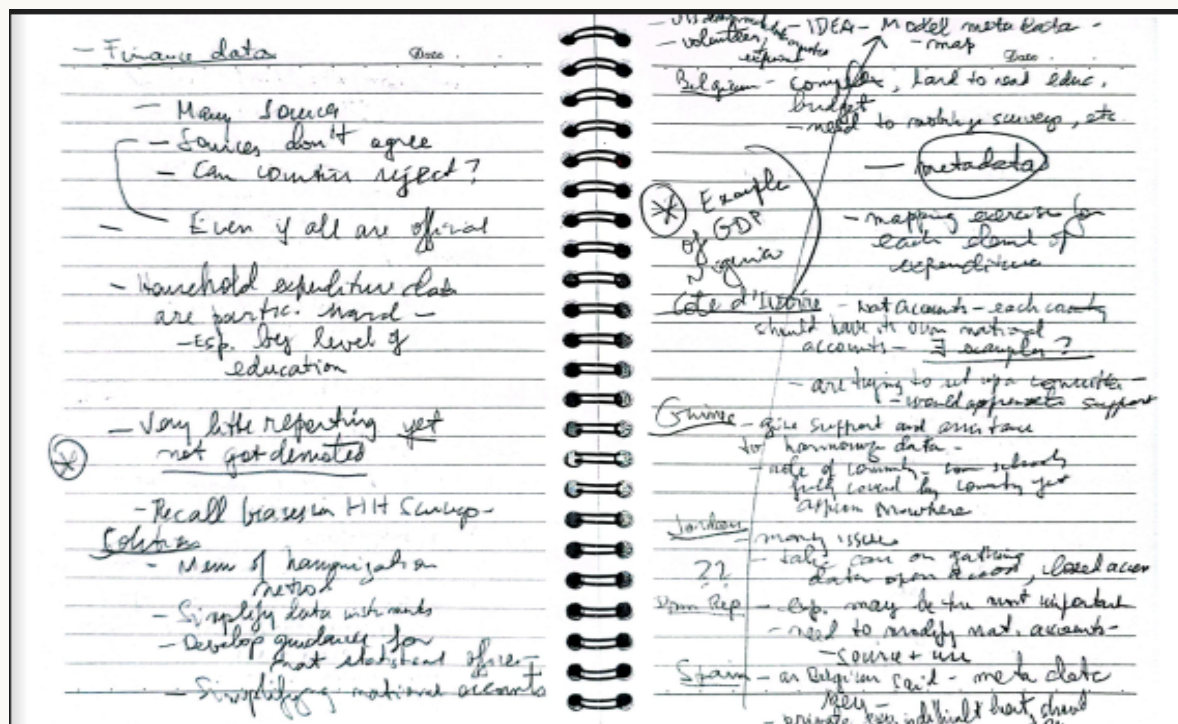 - Finance data
Date
- Many sources
- Sources don't agree
- Can countries reject?
- Even if all are official
- Household expenditure data
are partic. hard -
- Esp. by level of
education
- Very little reporting yet
not got
- Recall biases in HH Surveys -
- of harmonization
- Simplify data
- Develop guidance for
nat statistical offices -
- Simplifying national accounts
- IDEA - Model metadata -
- volunteers,
- map
Date
Belgium - complex, hard to read educ.
budget
- need to surveys, etc
- metadata
Example
of GDP
Nigeria
- mapping exercise for
each element of
expenditure
Cote d'Ivoire - nat accounts - each country
should have its own national
accounts - ∃ examples?
- are trying to set up a committee -
- would appreciate support
- give support and assistance
to harmonize data -
- role of community - schools
fully covered by community yet
nowhere
Jordan
- many issues
- take care on gathering
data open access, closed access
??
Dom Rep - exp. may be the most important
- need to modify nat. accounts -
- source + use
Spain - as Belgium said - meta data
key -
- private